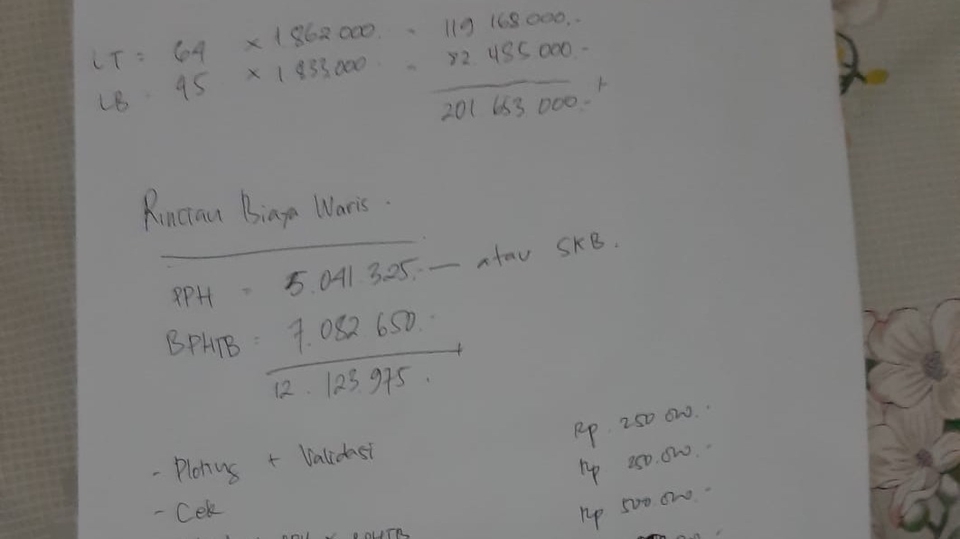 LT : 64 × 1 862 000. = 119 168 000.-
LB : 45 × 1 833 000 = 82 485 000.-
201 653 000.- +
Rincian Biaya Waris.
PPH = 5.041 325.- — atau SKB.
BPHTB : 7.082 650.-
12.123.975.
- Ploting + Validasi Rp. 250.000.-
- Cek Rp 250.000.-
Rp 500.000.-